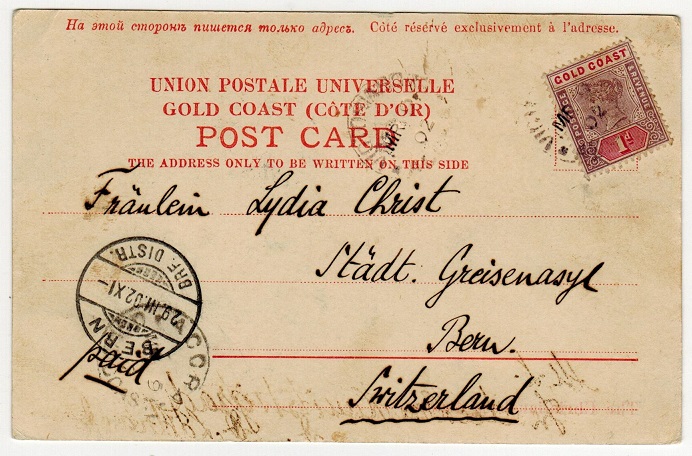 На этой сторонѣ пишется только адресъ. Côté réservé exclusivement à l'adresse.
UNION POSTALE UNIVERSELLE
GOLD COAST (CÔTE D'OR)
POST CARD
THE ADDRESS ONLY TO BE WRITTEN ON THIS SIDE
GOLD COAST
POSTAGE & REVENUE
1D
MR
02
MR
02
Fräulein Lydia Christ
Städt. Greisenasyl
Bern.
Switzerland
BRF. DISTR.
29.III.02.XI-
BERN
paid
ACCRA